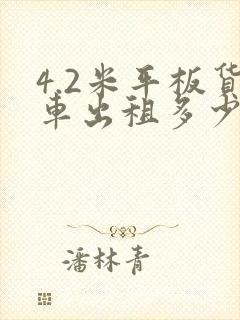 4.2米平板货
车出租多少
潘林青